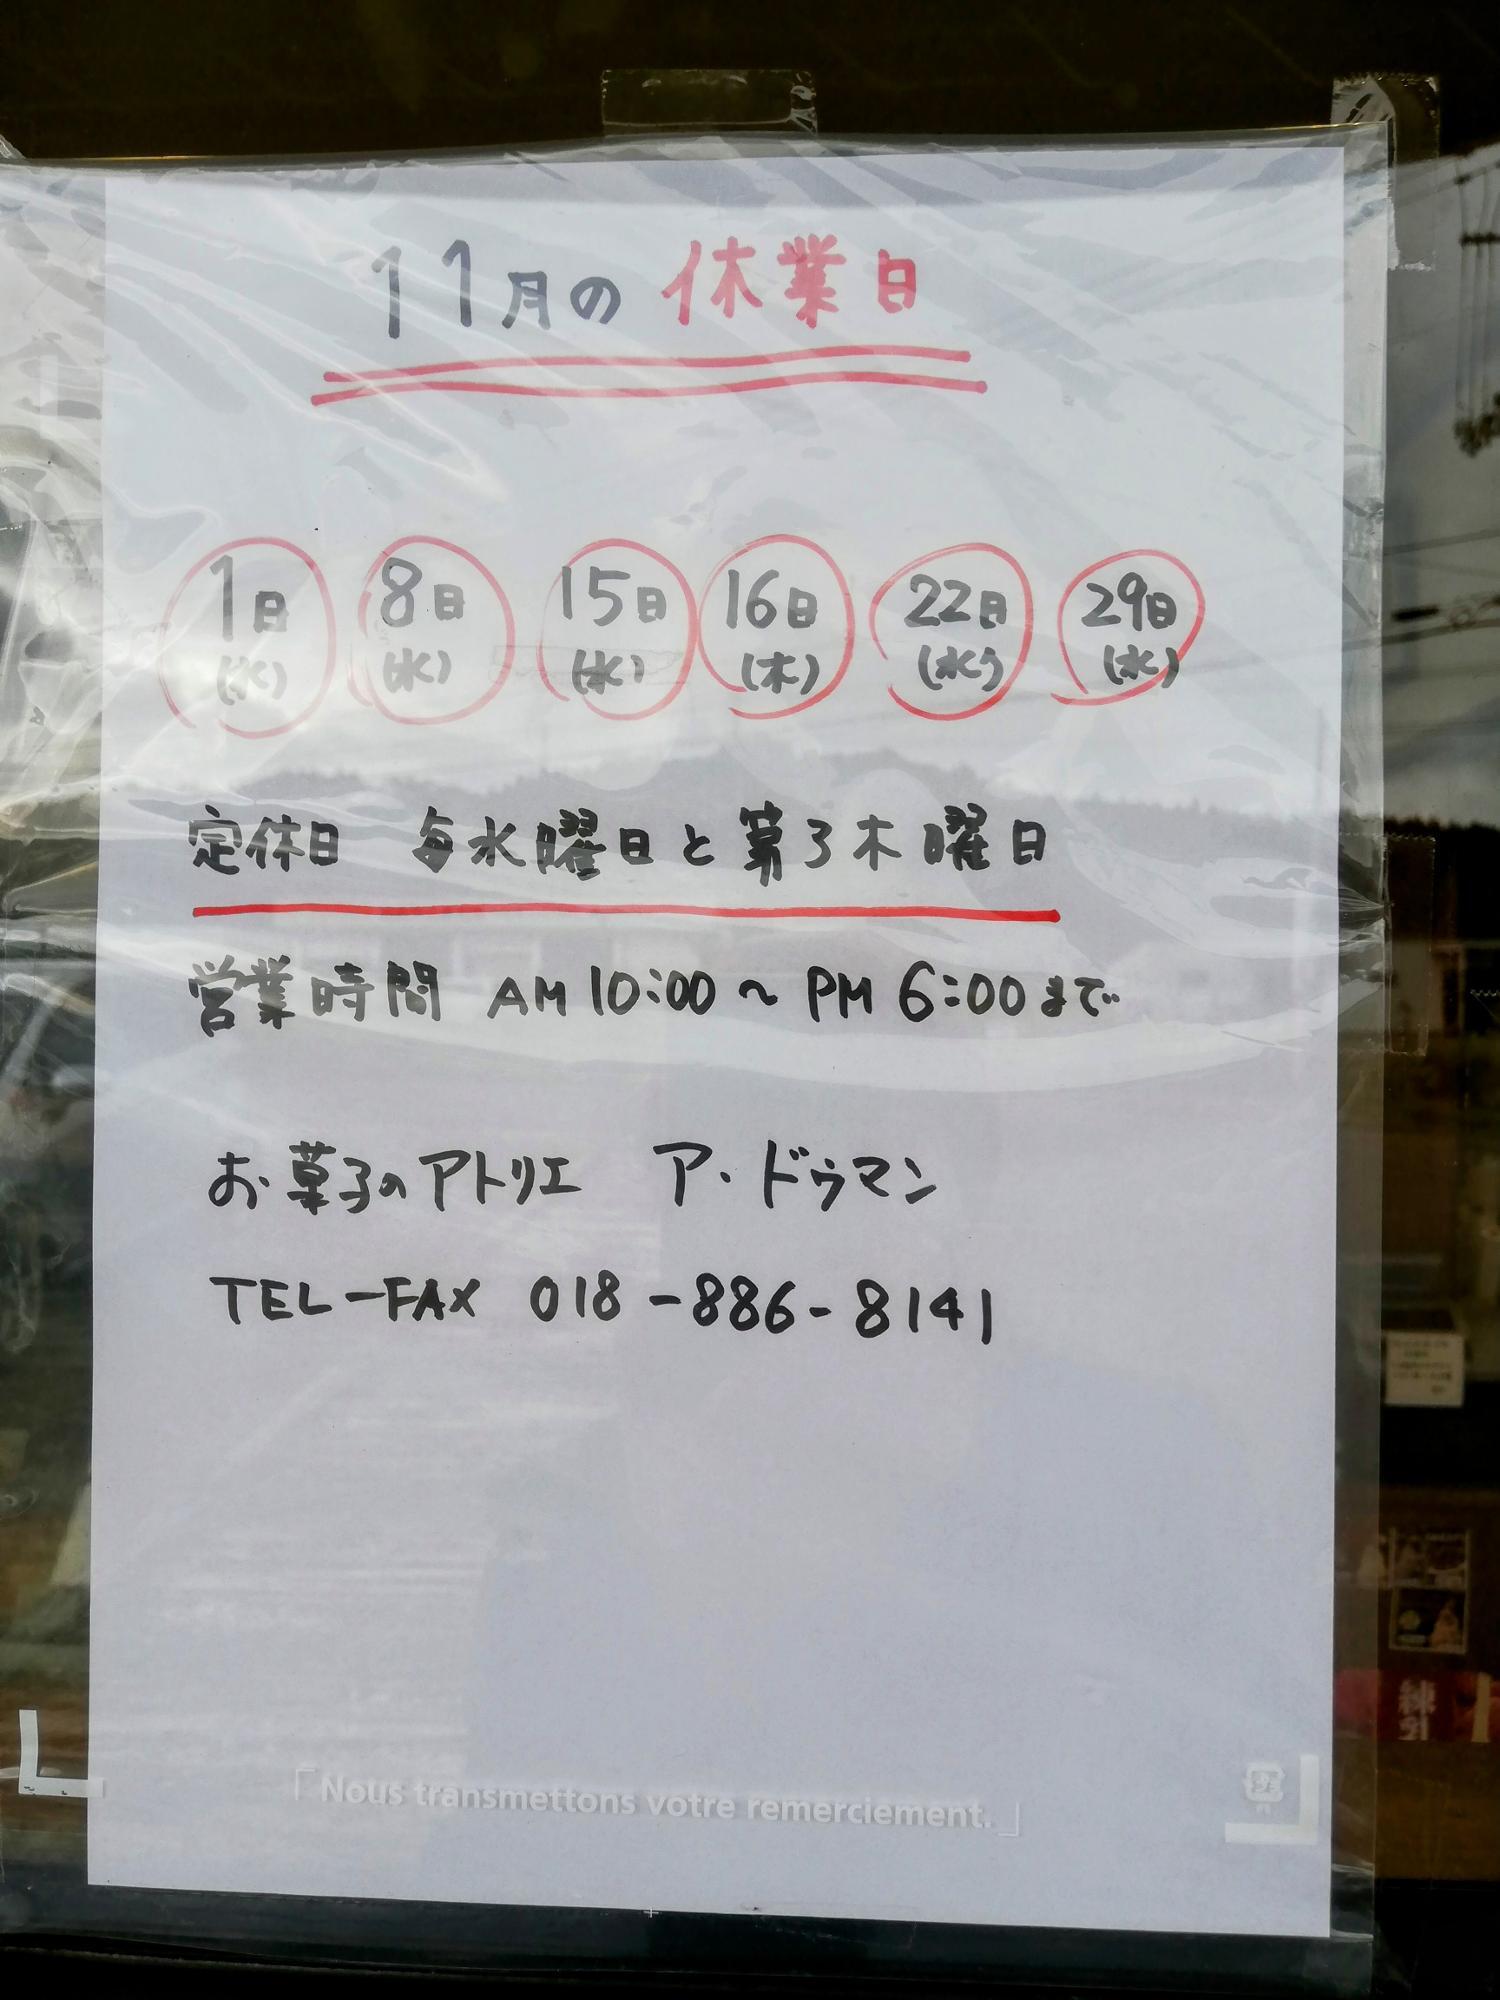 11月の 休業日
1日 8日 15日 16日 22日 29日
(水) (水) (水) (木) (水) (水)
定休日 毎水曜日と第3木曜日
営業時間 AM 10:00 〜 PM 6:00まで
お菓子のアトリエ ア・ドゥマン
TEL-FAX 018-886-8141
「Nous transmettons votre remerciement.」